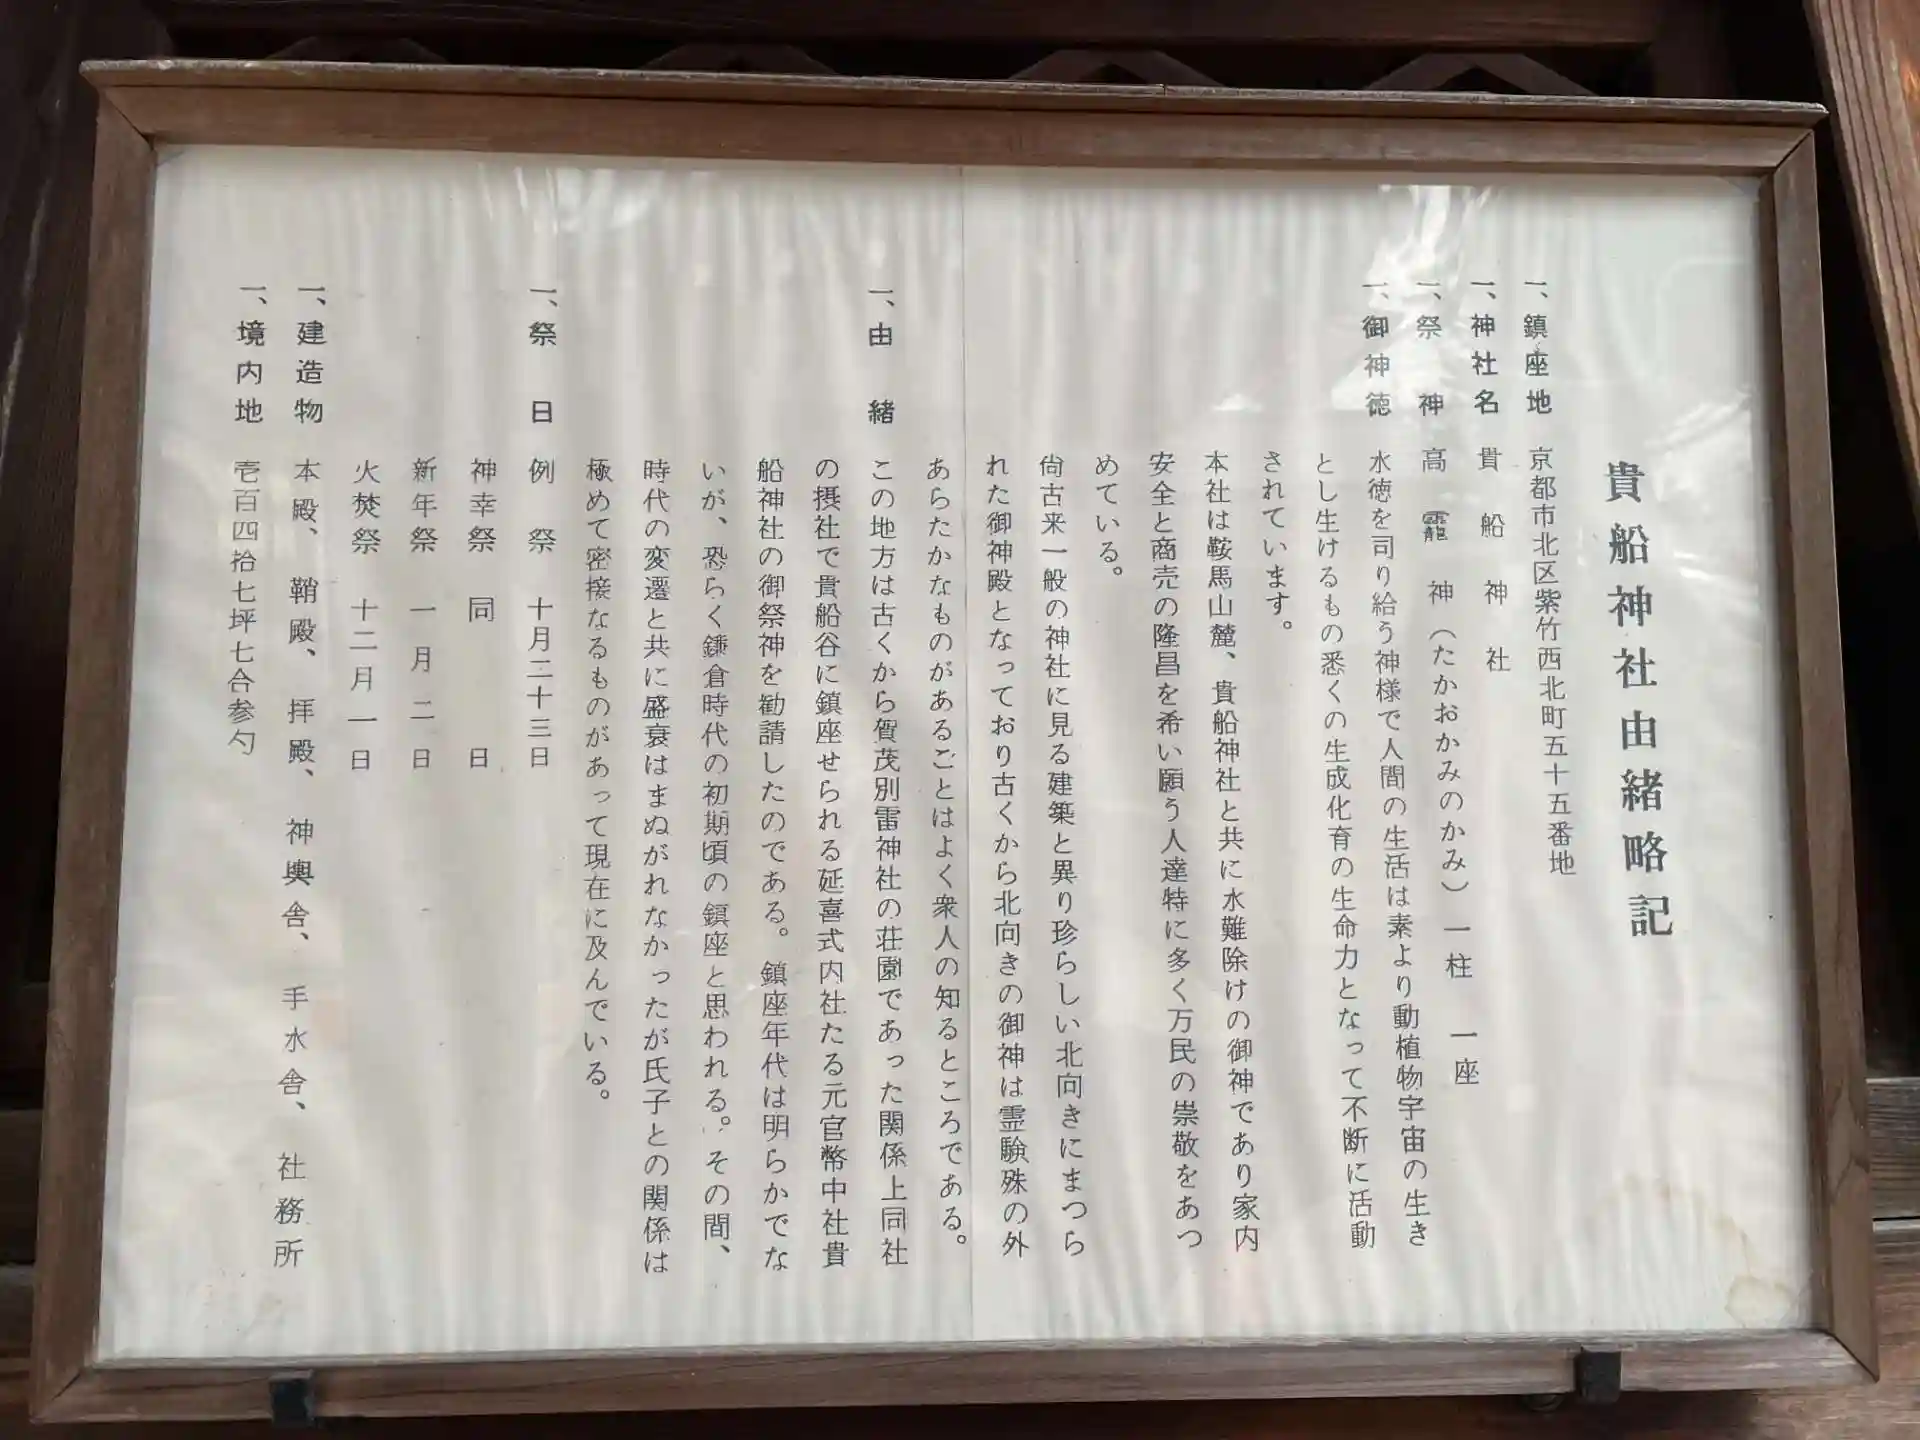 貴船神社由緒略記
一、鎮座地 京都市北区紫竹西北町五十五番地
一、神社名 貴船神社
一、祭神 高龗神(たかおかみのかみ)一柱 一座
一、御神徳 水徳を司り給う神様で人間の生活は素より動植物宇宙の生き
とし生けるもの悉くの生成化育の生命力となって不断に活動
されています。
本社は鞍馬山麓、貴船神社と共に水難除けの御神であり家内
安全と商売の隆昌を希い願う人達特に多く万民の崇敬をあつ
めている。
尙古来一般の神社に見る建築と異り珍らしい北向きにまつら
れた御神殿となっており古くから北向きの御神は霊験殊の外
あらたかなものがあるごとはよく衆人の知るところである。
一、由緒 この地方は古くから賀茂別雷神社の荘園であった関係上同社
の摂社で貴船谷に鎮座せられる延喜式内社たる元官幣中社貴
船神社の御祭神を勧請したのである。鎮座年代は明らかでな
いが、恐らく鎌倉時代の初期頃の鎮座と思われる。その間、
時代の変遷と共に盛衰はまぬがれなかったが氏子との関係は
極めて密接なるものがあって現在に及んでいる。
一、祭日 例祭 十月二十三日
神幸祭 同日
新年祭 一月二日
火焚祭 十二月一日
一、建造物 本殿、鞘殿、拝殿、神輿舎、手水舎、社務所
一、境内地 壱百四拾七坪七合参勺